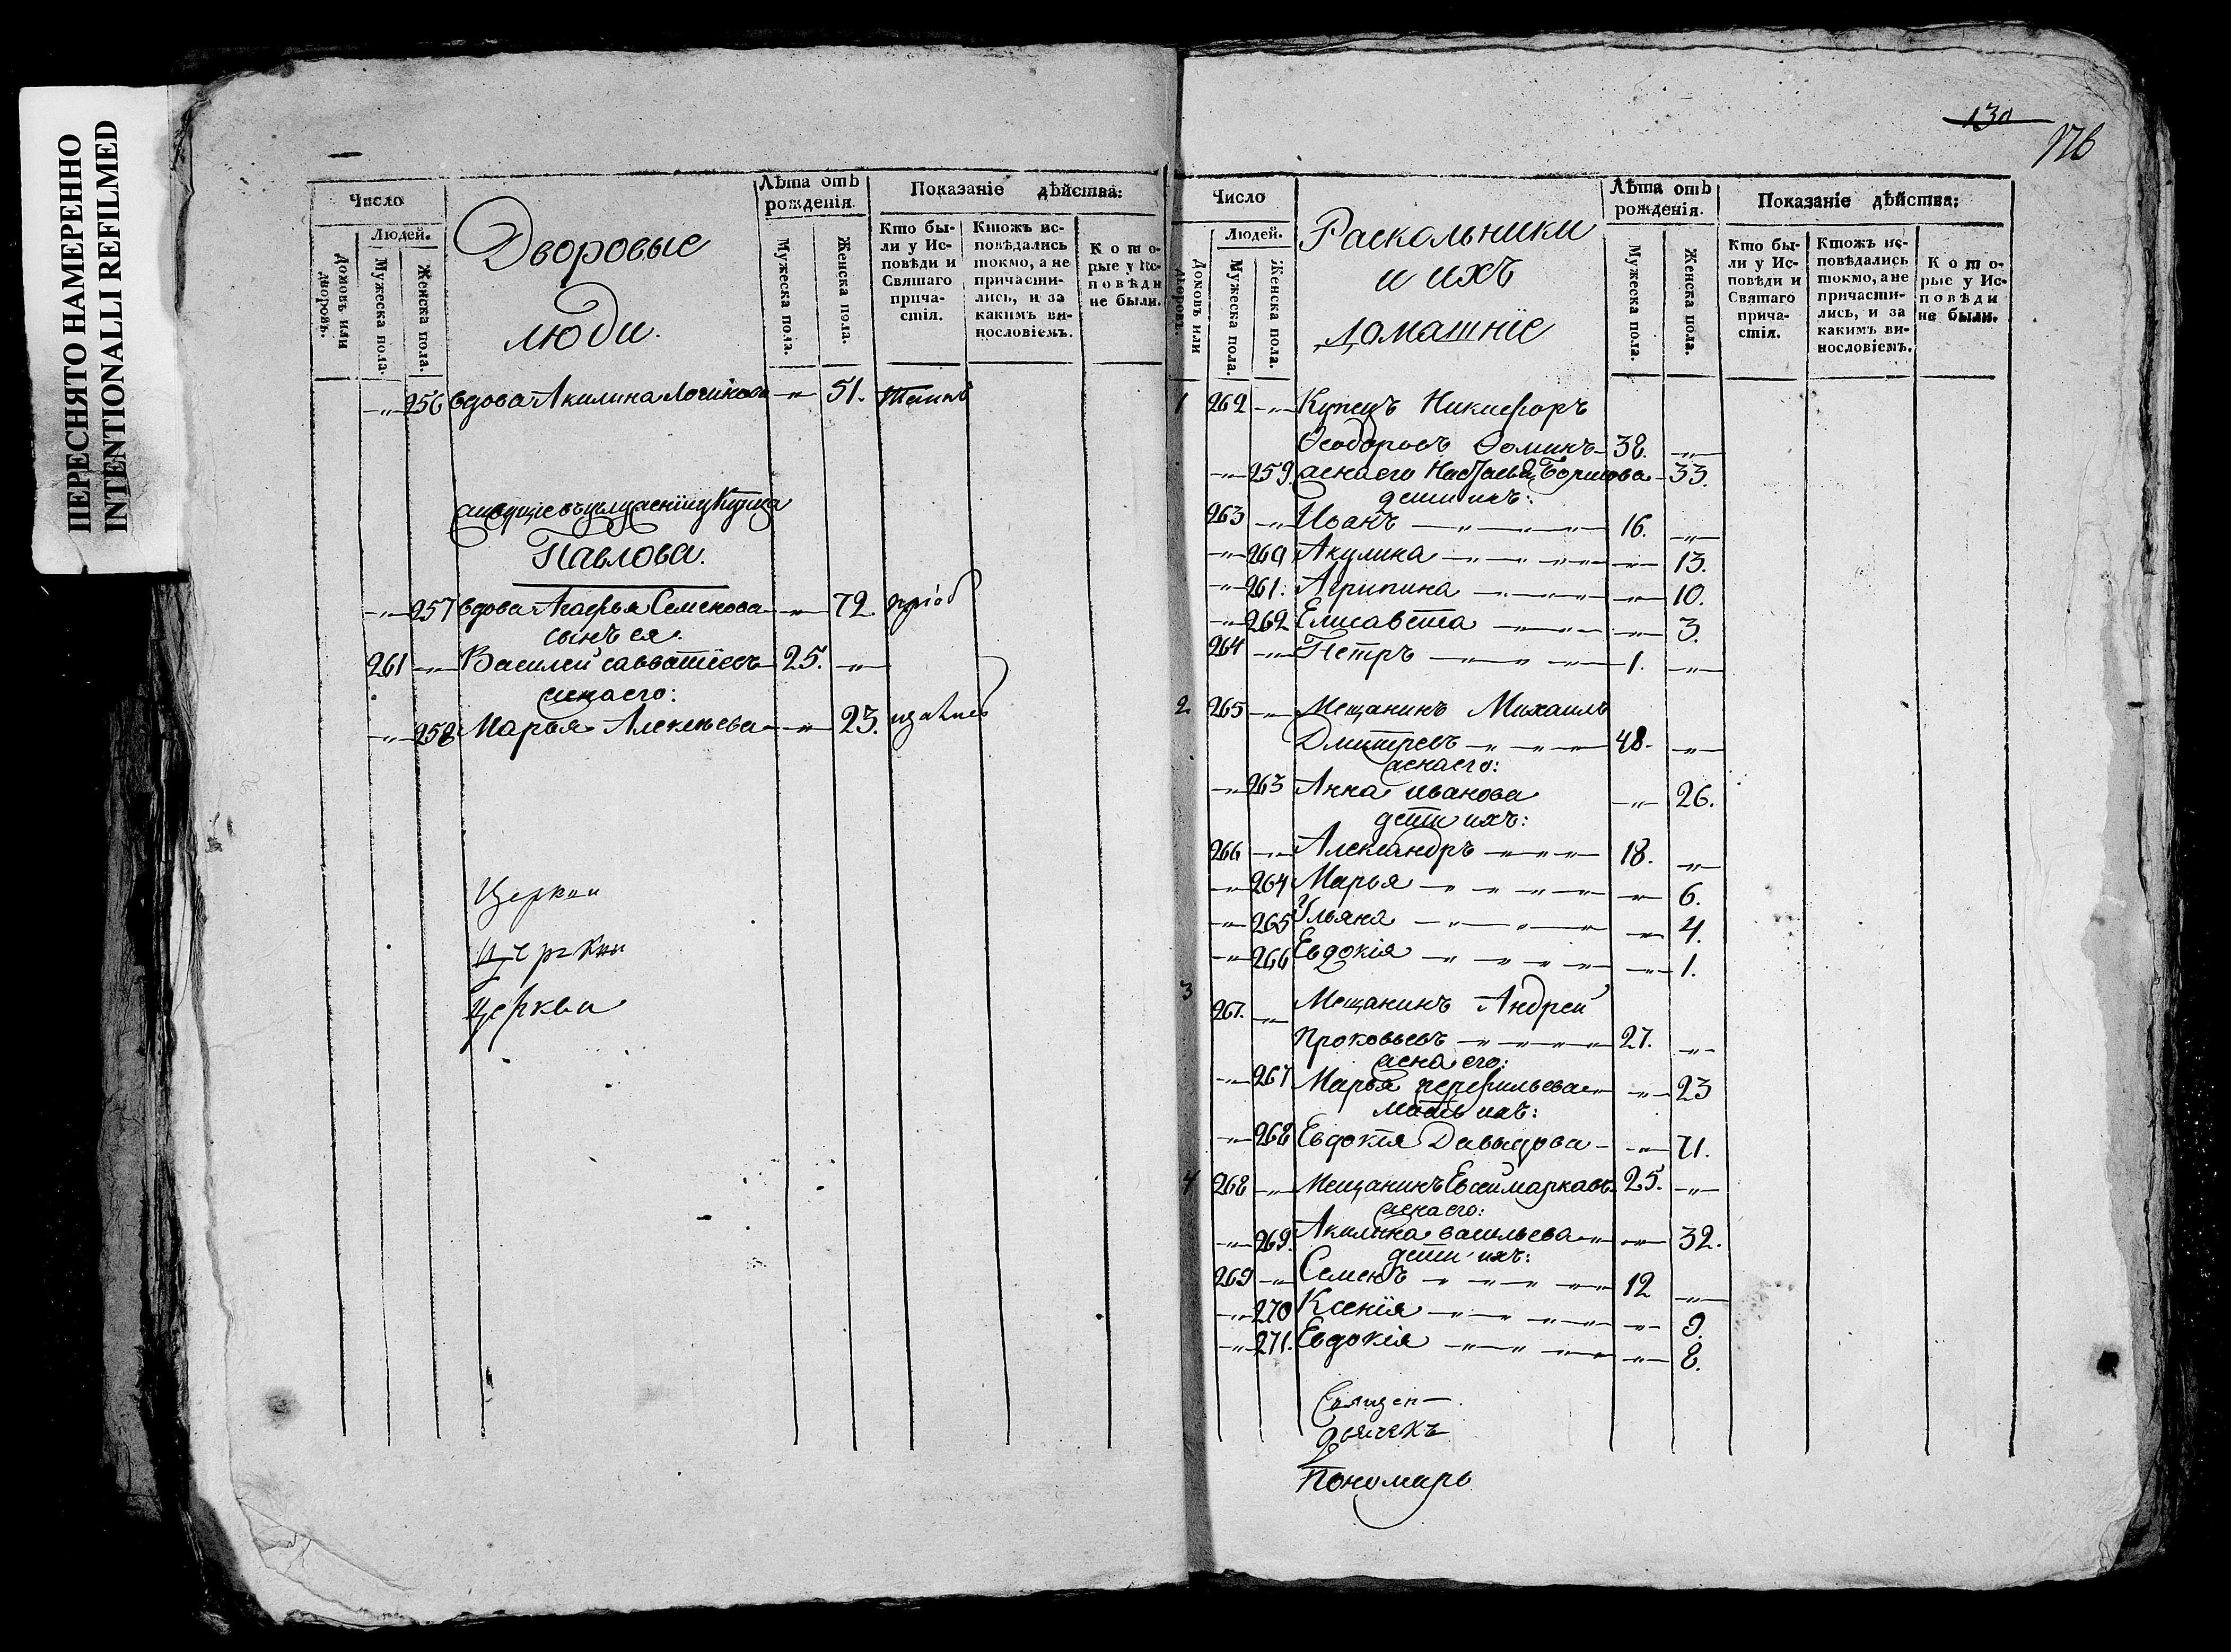 ПЕРЕСНЯТО НАМЕРЕННО
INTENTIONALLI REFILMED
Число
Людей.
Домовъ или дворовъ.
Мужеска пола.
Женска пола.
Дворовые
люди.
Лѣта отъ рожденія.
Мужеска пола.
Женска пола.
Показаніе дѣйства:
Кто были у Исповѣди и Святаго причастія.
Ктожъ исповѣдались токмо, а не причастились, и за какимъ винословіемъ.
Которые у Исповѣди не были.
-"- 256 вдова Акилина -"- 51.
Купца
Павлова.
-"- 257 вдова Агафья Семенова -"- 72.
сынъ ея.
261 -"- Василей савватѣевъ 25. -"-
жена его:
-"- 258 Марья Алексѣева -"- 23.
Церкви
Церкви
130
176
Число
Людей.
Домовъ или дворовъ.
Мужеска пола.
Женска пола.
Раскольники
и ихъ
домашніе
Лѣта отъ рожденія.
Мужеска пола.
Женска пола.
Показаніе дѣйства:
Кто были у Исповѣди и Святаго причастія.
Ктожъ исповѣдались токмо, а не причастились, и за какимъ винословіемъ.
Которые у Исповѣди не были.
1 262 -"- Купецъ Никифоръ
Ѳеодоровъ Ѳоминъ 38. -"-
-"- 259. жена его Настасья Борисова 33.
дети ихъ:
263 -"- Иоанъ 16. -"-
-"- 260 Акулина -"- 13.
-"- 261. Агрипина -"- 10.
-"- 262 Елисавета -"- 3.
264 -"- Петръ 1. -"-
2 265 -"- Мещанинъ Михаилъ
Дмитревъ 48. -"-
жена его:
-"- 263 Анна иванова -"- 26.
дети ихъ:
266 -"- Александръ 18. -"-
-"- 264 Марья -"- 6.
-"- 265 Ульяна -"- 4.
-"- 266 Евдокія -"- 1.
3 267. -"- Мещанинъ Андрей
Проковьевъ 27. -"-
жена его:
-"- 267 Марья перфильева -"- 23
мать ихъ:
-"- 268 Евдокія Давыдова -"- 71.
4 268 -"- Мещанинъ Евсей марковъ 25. -"-
жена его:
-"- 269. Акилина васильева -"- 32.
дети ихъ:
269 -"- Семенъ 12 -"-
-"- 270 Ксенія -"- 9.
-"- 271. Евдокія -"- 8.
Священ
дьячекъ
Пономарь